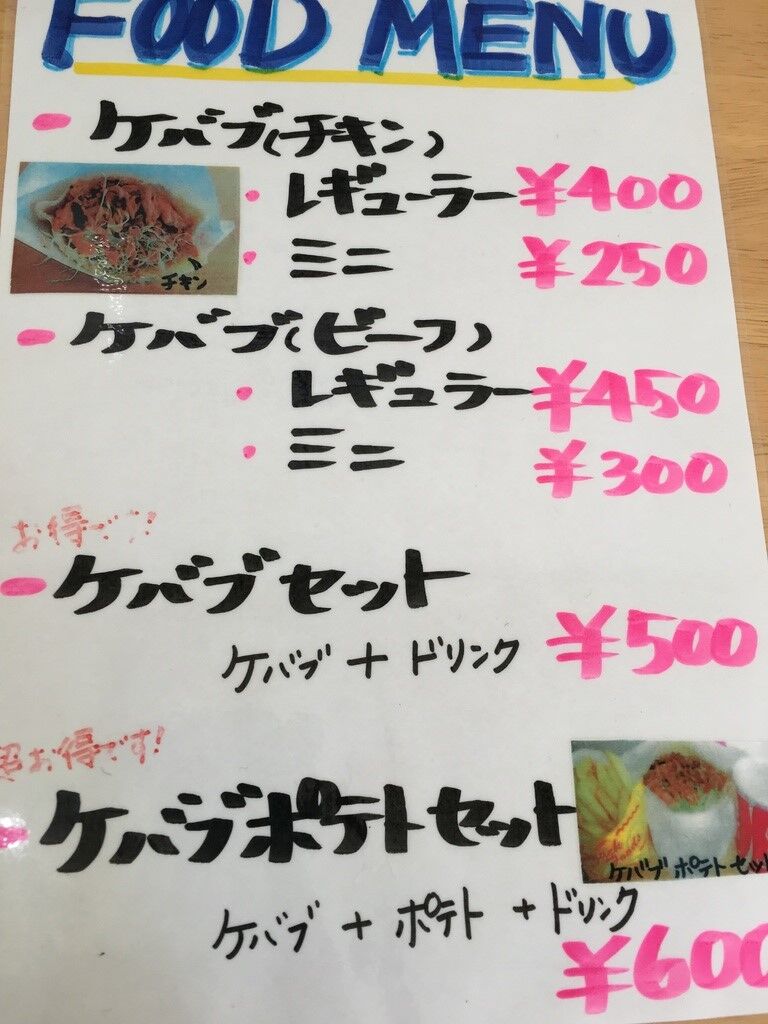 FOOD MENU
ケバブ(チキン)
・レギューラー ¥400
・ミニ ¥250
チキン
ケバブ(ビーフ)
・レギュラー ¥450
・ミニ ¥300
お得です!
ケバブセット
ケバブ + ドリンク ¥500
超お得です!
ケバブポテトセット
ケバブポテトセット
ケバブ + ポテト + ドリンク
¥600